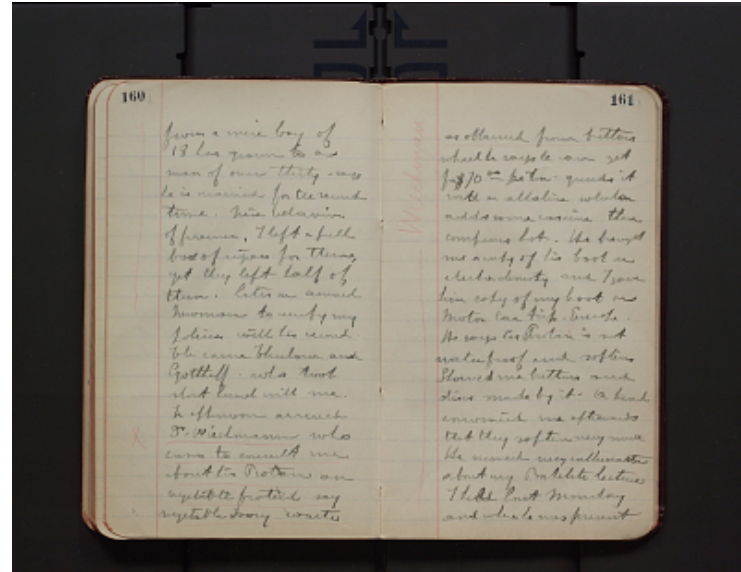 160
from a mere boy of
18 has grown to a
man of over thirty - says
he is married for the second
time. 
of firemen, I left a full
box of cigars for them,
yet they left half of
them. Later on arrived
Newman to verify my
policies with his record
Gotthelf - who took
short hand with me.
In afternoon arrived
Dr. Wiechmann who
came to consult me
about his Protein an
vegetable say
vegetable ivory
161
Wiechmann
as obtained from button
wheel he says he can get
for $70 00 per ton - grinds it
with an alkaline
adds some casein then
compresses hot. He brought
me a copy of his book on
electrochemistry and I gave
him copy of my book on
Motor Car Trip - Europe.
He says his Protein is not
waterproof and softens
Showed me buttons and
discs made by it - 
me afterwards
that they soften very much
He seemed very enthusiastic
about my Bakelite lecture
I had last Monday
and where he was present